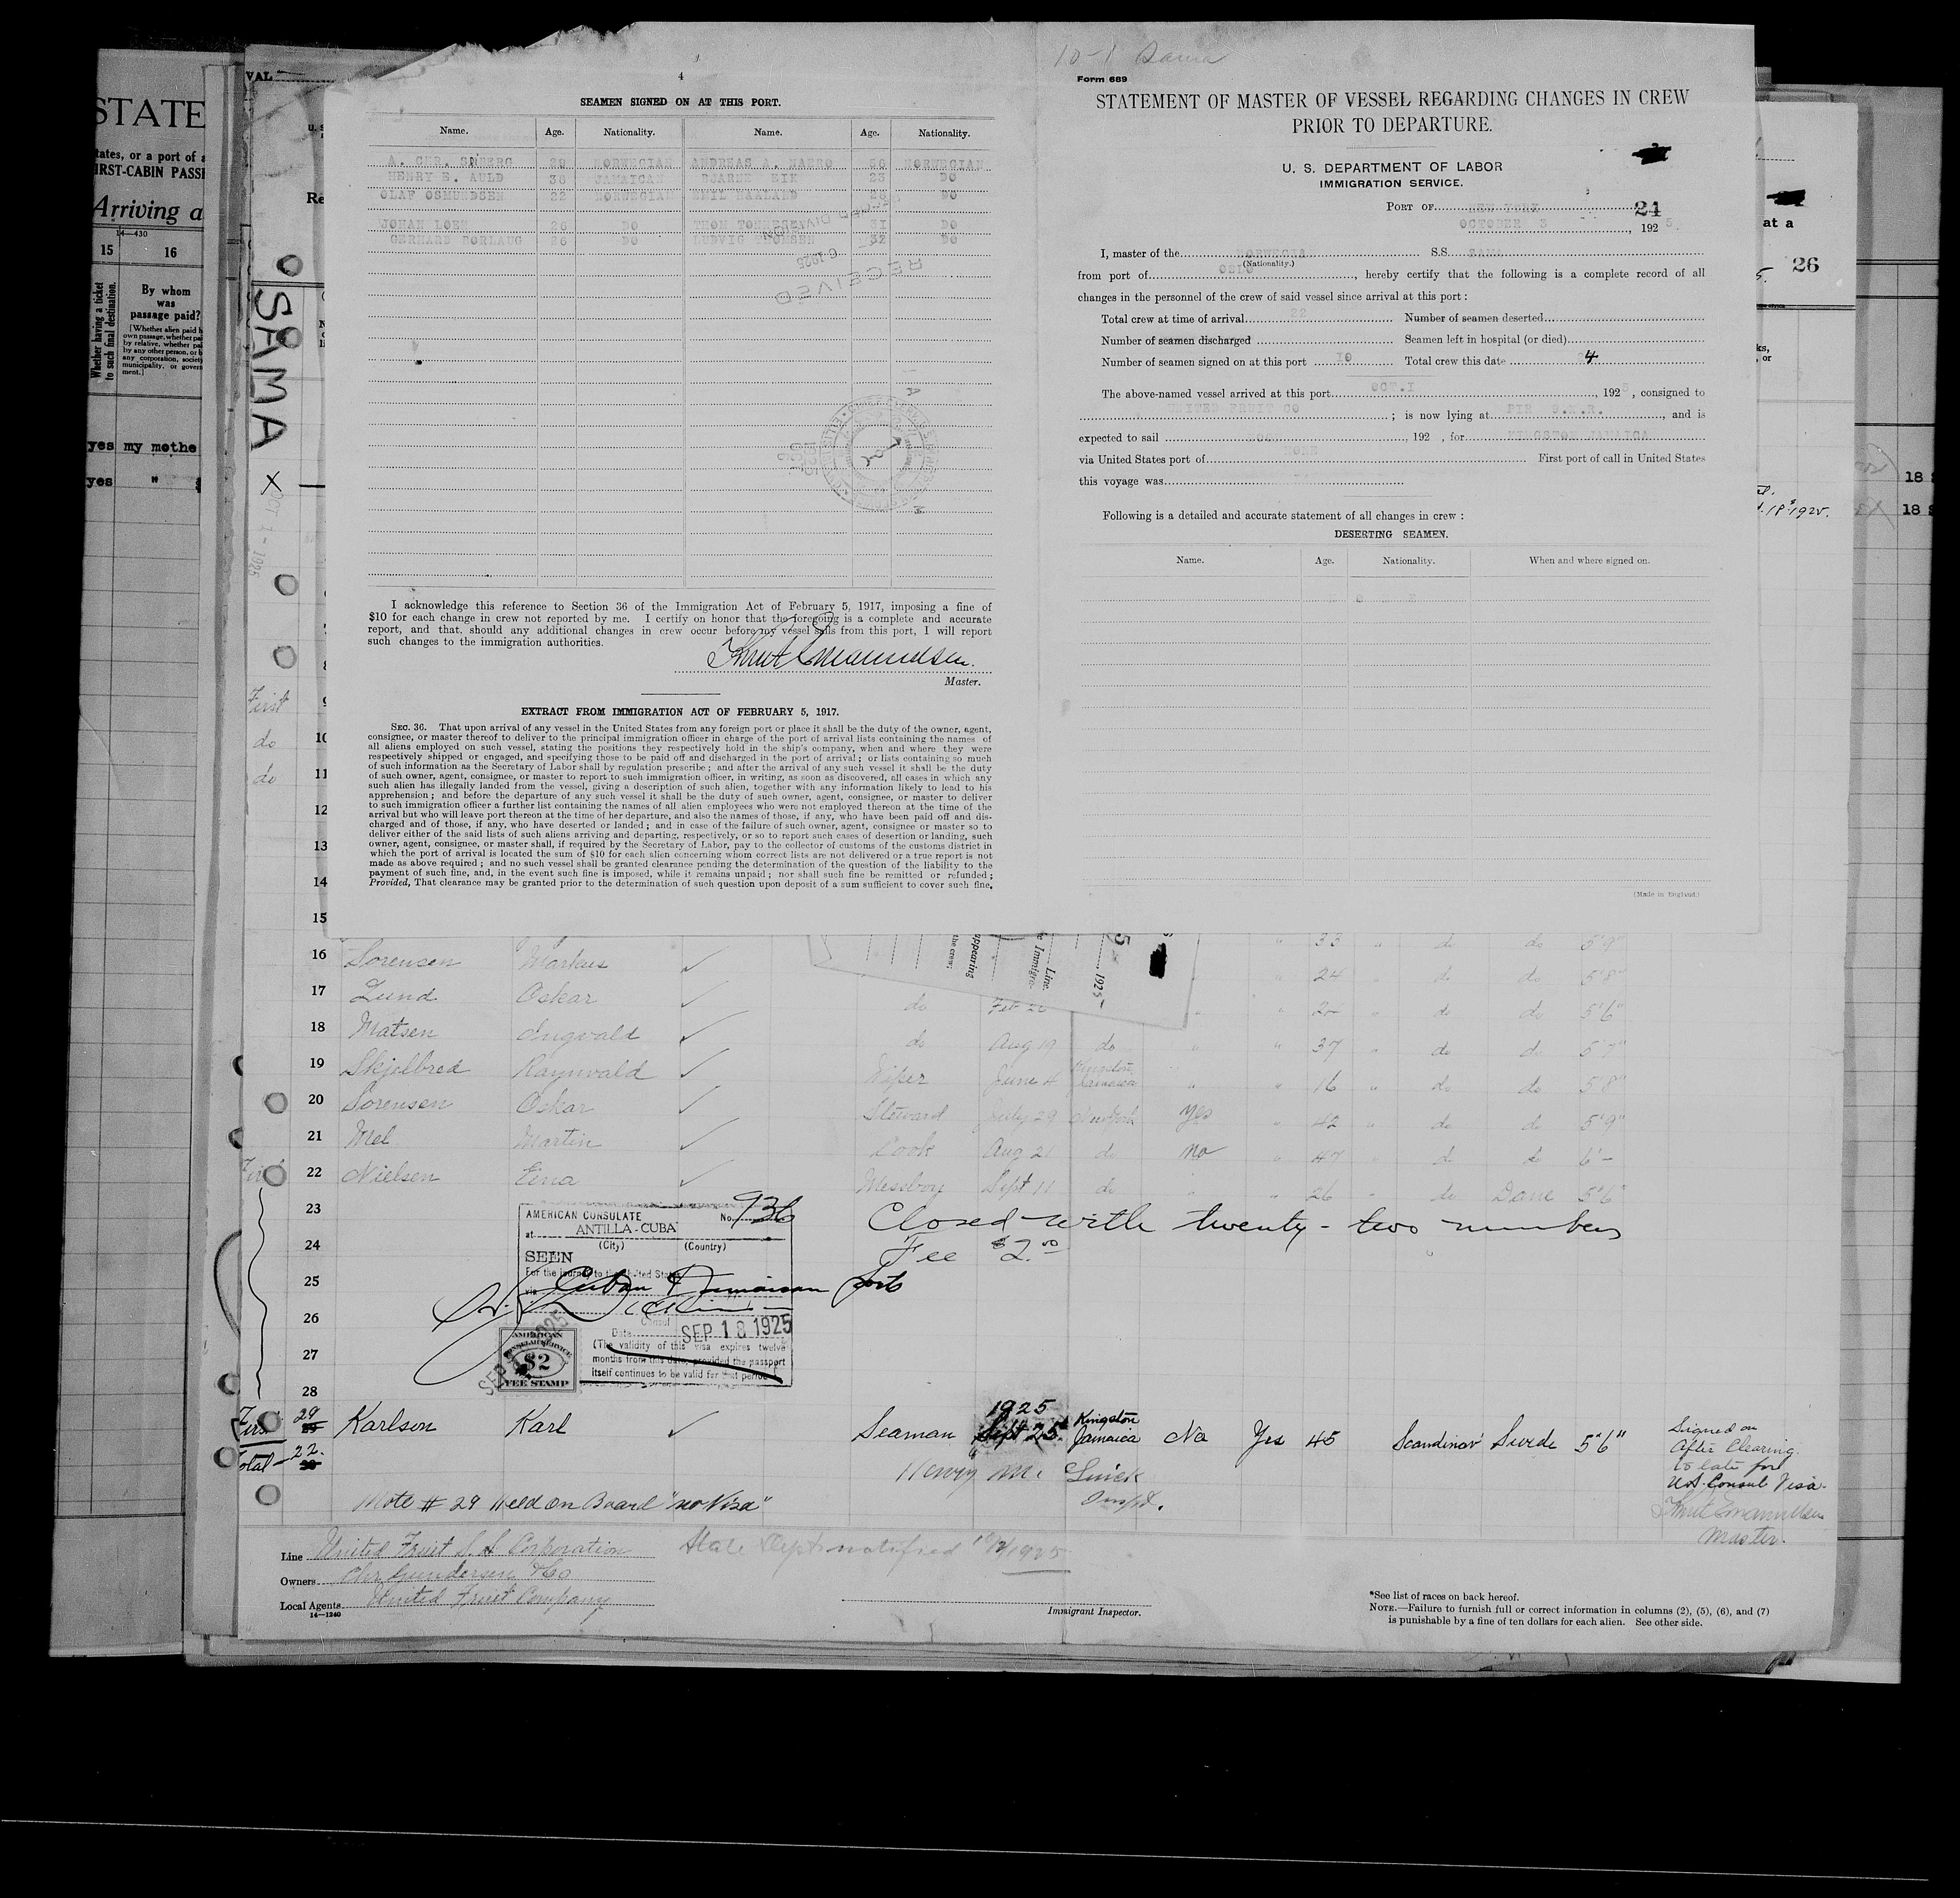 4
SEAMEN SIGNED ON AT THIS PORT.
Name. Age. Nationality. Name. Age. Nationality.
A. CHR. 29 NORWEGIAN ANDREAS A. 56 NORWEGIAN
HENRY E. AULD 38 JAMAICAN BJARNE EIK 23 DO
OLAF OSMUNDSEN 22 NORWEGIAN EMIL DO
JOHAN 26 DO THOM 31 DO
GERHARD BORLAUG 26 DO LUDVIG 32 DO
RECEIVED
I acknowledge this reference to Section 36 of the Immigration Act of February 5, 1917, imposing a fine of
$10 for each change in crew not reported by me. I certify on honor that the foregoing is a complete and accurate
report, and that, should any additional changes in crew occur before my vessel sails from this port, I will report
such changes to the immigration authorities.
Master.
EXTRACT FROM IMMIGRATION ACT OF FEBRUARY 5, 1917.
SEC. 36. That upon arrival of any vessel in the United States from any foreign port or place it shall be the duty of the owner, agent,
consignee, or master thereof to deliver to the principal immigration officer in charge of the port of arrival lists containing the names of
all aliens employed on such vessel, stating the positions they respectively hold in the ship's company, when and where they were
respectively shipped or engaged, and specifying those to be paid off and discharged in the port of arrival; or lists containing so much
of such information as the Secretary of Labor shall by regulation prescribe; and after the arrival of any such vessel it shall be the duty
of such owner, agent, consignee, or master to report to such immigration officer, in writing, as soon as discovered, all cases in which any
such alien has illegally landed from the vessel, giving a description of such alien, together with any information likely to lead to his
apprehension; and before the departure of any such vessel it shall be the duty of such owner, agent, consignee, or master to deliver
to such immigration officer a further list containing the names of all alien employees who were not employed thereon at the time of the
arrival but who will leave port thereon at the time of her departure, and also the names of those, if any, who have been paid off and dis-
charged and of those, if any, who have deserted or landed; and in case of the failure of such owner, agent, consignee or master so to
deliver either of the said lists of such aliens arriving and departing, respectively, or so to report such cases of desertion or landing, such
owner, agent, consignee, or master shall, if required by the Secretary of Labor, pay to the collector of customs of the customs district in
which the port of arrival is located the sum of $10 for each alien concerning whom correct lists are not delivered or a true report is not
made as above required; and no such vessel shall be granted clearance pending the determination of the question of the liability to the
payment of such fine, and, in the event such fine is imposed, while it remains unpaid; nor shall such fine be remitted or refunded;
Provided, That clearance may be granted prior to the determination of such question upon deposit of a sum sufficient to cover such fine,
10-1 Sama
Form 689
STATEMENT OF MASTER OF VESSEL REGARDING CHANGES IN CREW
PRIOR TO DEPARTURE.
U. S. DEPARTMENT OF LABOR
IMMIGRATION SERVICE.
PORT OF NEW YORK 24
OCTOBER 3, 1925
I, master of the NORWEGIA S.S. SAMA
(Nationality.)
from port of OSLO, hereby certify that the following is a complete record of all
changes in the personnel of the crew of said vessel since arrival at this port:
Total crew at time of arrival 22 Number of seamen deserted
Number of seamen discharged Seamen left in hospital (or died)
Number of seamen signed on at this port 10 Total crew this date 4
The above-named vessel arrived at this port OCT.1, 1925, consigned to
UNITED FRUIT CO; is now lying at PIR 9.E.R., and is
expected to sail, 192 , for KINGSTON JAMAICA
via United States port of NONE First port of call in United States
this voyage was
Following is a detailed and accurate statement of all changes in crew:
DESERTING SEAMEN.
Name. Age. Nationality. When and where signed on.
(Made in England.)
STATE
tates, or a port of a
IRST-CABIN PASS
Arriving a
14-430
15 16
Whether having a ticket to such final destination.
By whom
was
passage paid?
yes my mothe
yes "
VAL
SAMA
X
OCT 1 - 1925
First
do 10
do 11
12
13
14
15
at a
26
18
18
33 " do do 5'9"
16 Sorensen Markus ✓ 24 " do do 5'8"
17 Lund Oskar ✓ do Feb 26 " 24 " do do 5'6"
18 Matsen Ingvald ✓ do Aug 19 do " " 37 " do do 5'7"
19 Skjelbred Raynvald ✓ Wiper June 4 Kingston Jamaica " " 16 " do do 5'8"
20 Sorensen Oskar ✓ Steward July 29 New York Yes " 42 " do do 5'9"
21 Mel Martin ✓ Cook Aug 21 do No " 47 " do do 6'-
22 Nielsen Eina ✓ Messboy Sept 11 do " " 26 " do Dane 5'6"
23
24
25
26
27
28
Closed with twenty-two numbers
Fee $2.00
AMERICAN CONSULATE No. 936
at ANTILLA-CUBA
(City) (Country)
SEEN
For the journey to the United States
via Cuban & Jamaican Ports
Consul
Date SEP 18 1925
(The validity of this visa expires twelve
months from this date, provided the passport
itself continues to be valid for that period
AMERICAN
CONSULAR SERVICE
$2
FEE STAMP
First 29 Karlson Karl ✓ Seaman 1925 Sept 25 Kingston Jamaica No Yes 45 Scandinav Swede 5'6"
Signed on
After Clearing.
to late for
U.S. Consul Visa.
Knut Emanuelsen
Master.
Total - 22
Note # 29 Held On Board "no Visa"
Line United Fruit S. S Corporation
State Dept notified
Owners Chr. Gundersen & Co
Local Agents United Fruit Company
14-1240
Immigrant Inspector.
*See list of races on back hereof.
NOTE.—Failure to furnish full or correct information in columns (2), (5), (6), and (7)
is punishable by a fine of ten dollars for each alien. See other side.